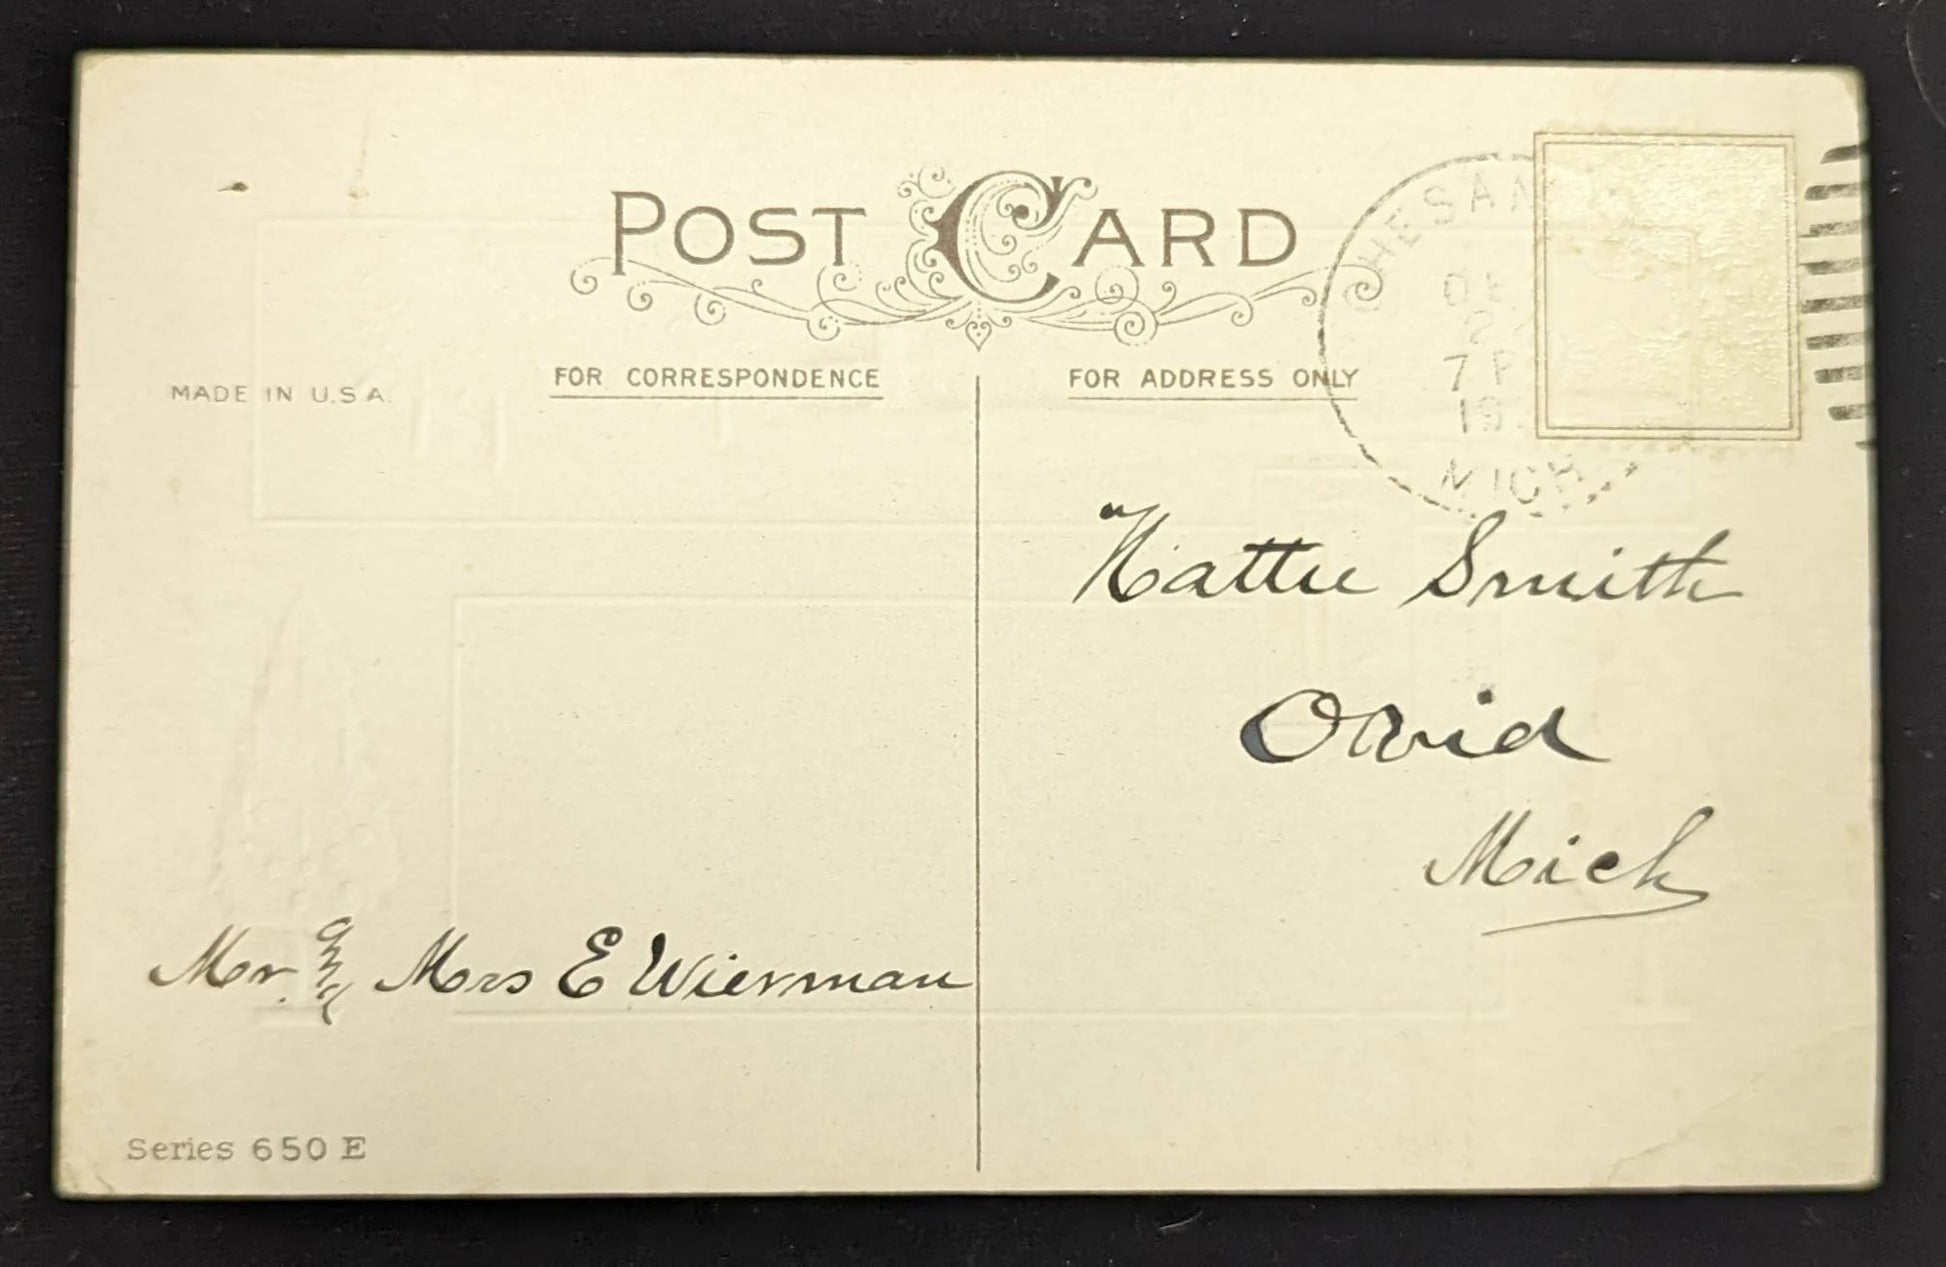 POST CARD
CHESAN
DE
2
7 P
19
MICH.
MADE IN U.S.A.
FOR CORRESPONDENCE
FOR ADDRESS ONLY
Hattie Smith
Ovid
Mich
Mr. & Mrs E Wierman
Series 650 E